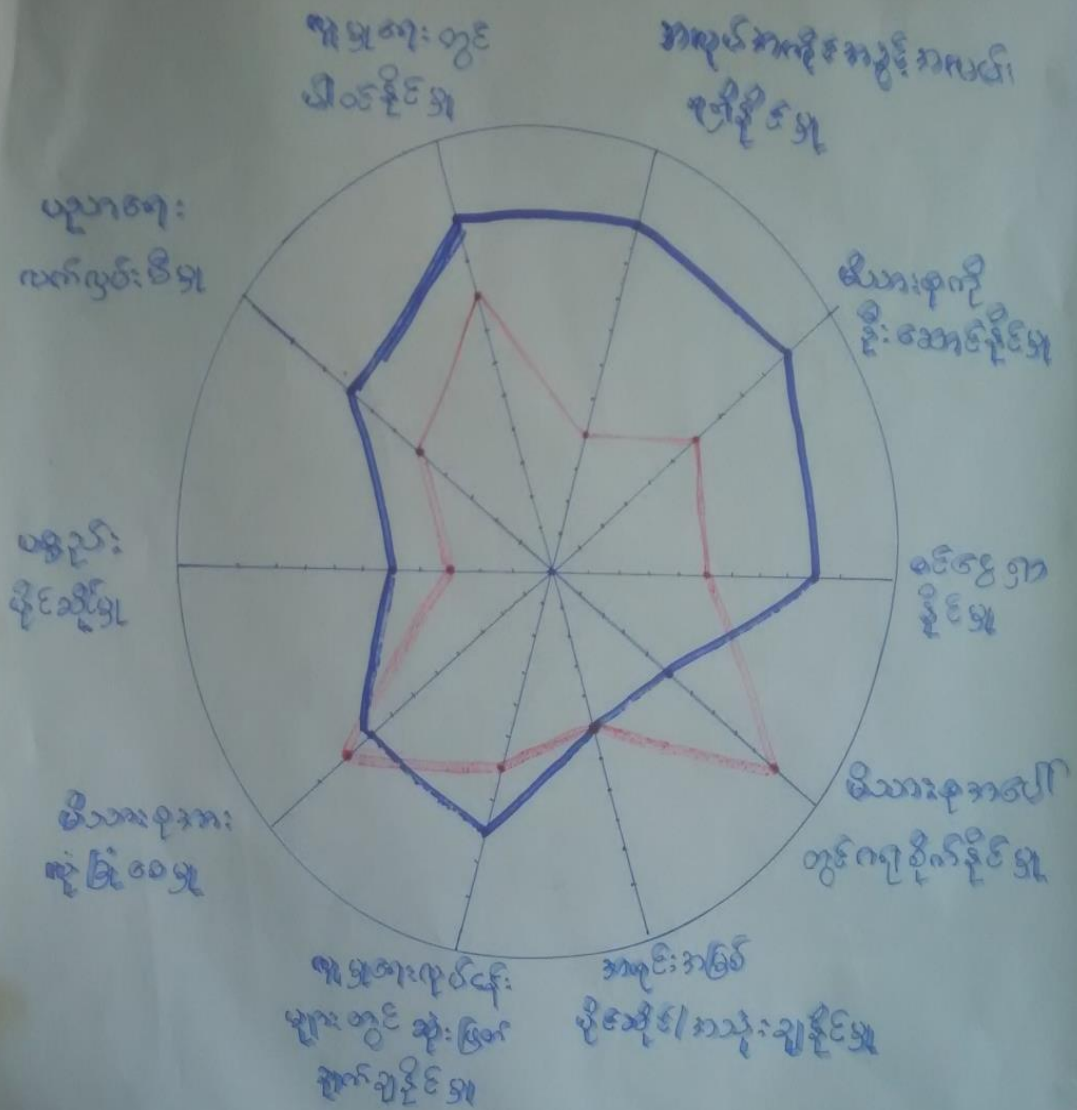 လူမှုရေးတွင်
ပါဝင်နိုင်မှု
အလုပ်အကိုင်အခွင့်အလမ်း
ရရှိနိုင်မှု
မိသားစုကို
ဦးဆောင်နိုင်မှု
ဝင်ငွေရှာ
နိုင်မှု
မိသားစုအပေါ်
တွင်ဂရုစိုက်နိုင်မှု
အရင်းအမြစ်
ပိုင်ဆိုင်/အသုံးချနိုင်မှု
လူမှုရေးလုပ်ငန်း
များတွင် ဆုံးဖြတ်
ချက်ချနိုင်မှု
မိသားစုအား
လုံခြုံစေမှု
ပစ္စည်း
ပိုင်ဆိုင်မှု
ပညာရေး
လက်လှမ်းမီမှု